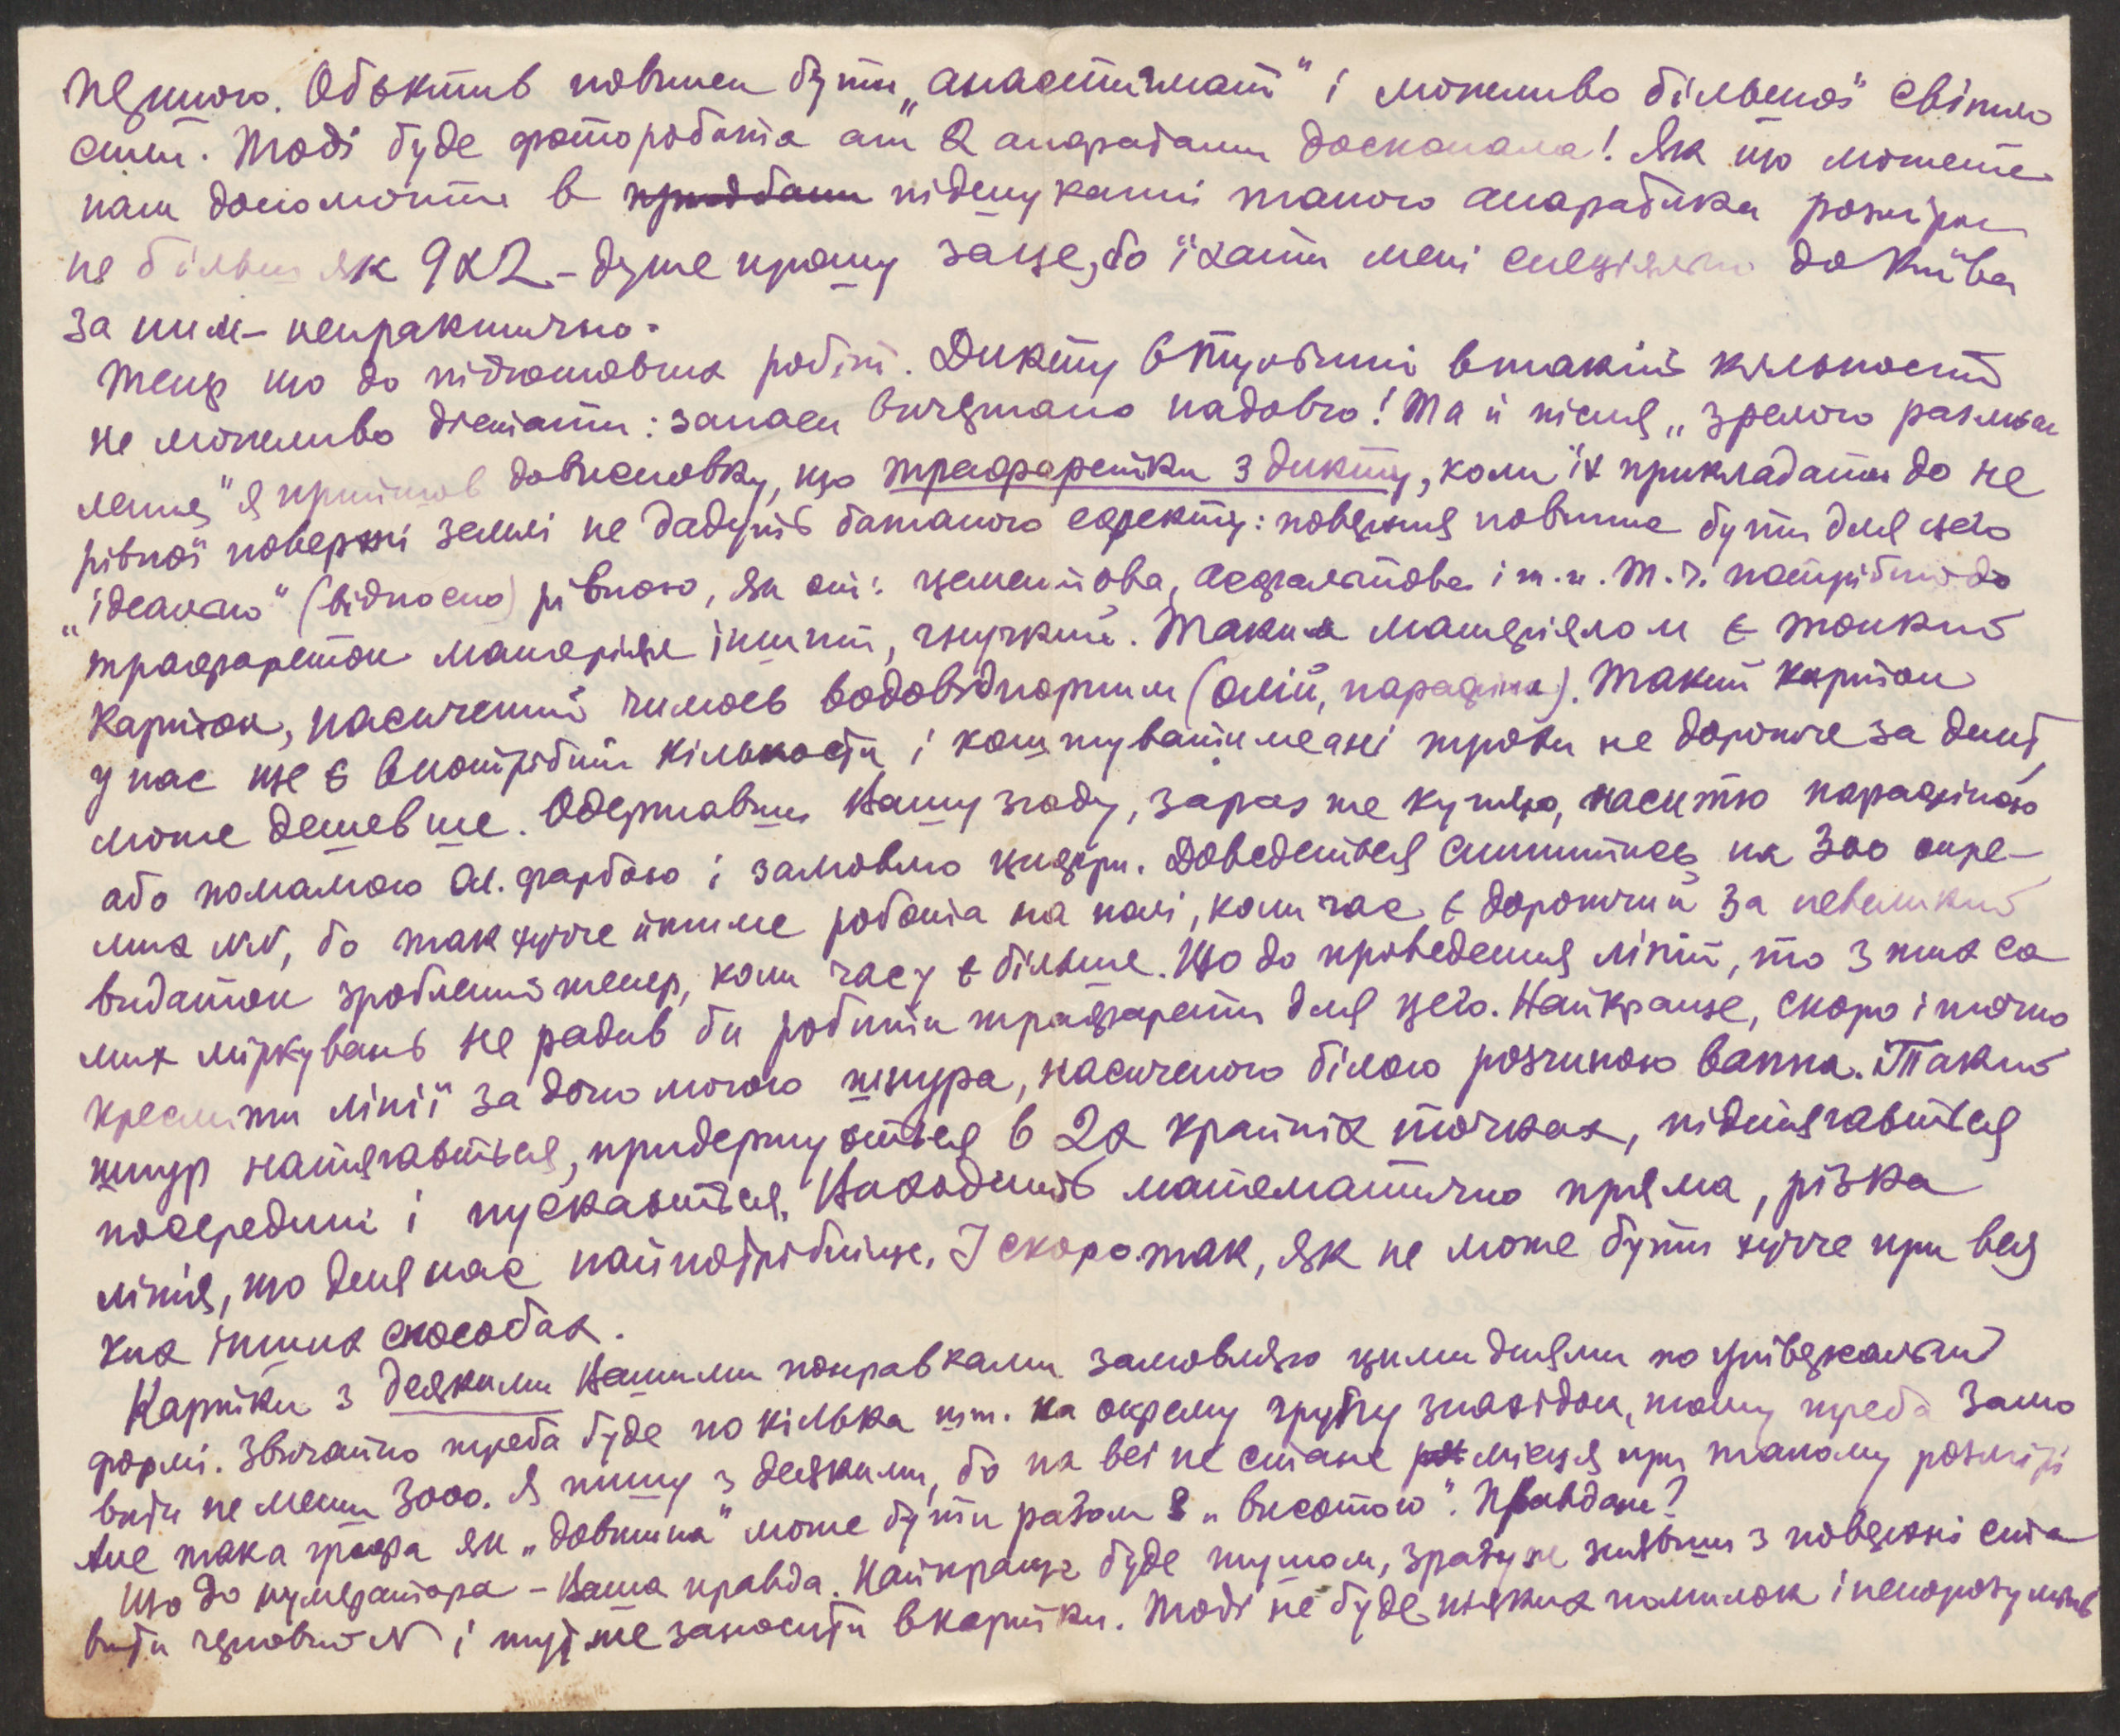 Обьктив повинен бути „анастигмат" і можливо більшої світло
сили. Тоді буде фоторобота 2 апаратами досконала! Як що можете
нам допомогти в придбанн підшуканні такого апаратика розміром
не більш як 9х12 – дуже прошу за це, бо їхати мені спеціяльно до Київа
за ним – непрактично.
Тепер що до підготовчих робіт. Дикту в Тульчині в такій кількости
не можливо дістати: запаси вичерпано надовго! Та й після „зрелого размыш
ления" я прийшов до висновку, що трафаретки з дикту, коли їх прикладати до не
рівної поверхні землі не дадуть бажаного ефекту: поверхня повинна бути для цього
„ідеально" (відносно) рівною, як от: цементова, асфальтова і т. и. Т. ч. потрібно до
трафареток матеріял інший, гнучкий. Таким матеріялом є тонкий
картон, насичений чимось водовідпорним (олій, парафіна). Такий картон
у нас ще є в потрібній кількости, і коштуватиме ані трохи не дорожче за дикт,
може дешевше. Одержавши Вашу згоду, зараз же куплю, насичю парафіною
або помалюю ол. фарбою і замовлю цифри. Доведеться спинитись на 300 окре-
мих №№, бо так хутче йтиме робота на полі, коли час є дорожчий за невеликий
видаток зроблений тепер, коли часу є більше. Що до проведення ліній, то з тих са
мих міркувань не радив би робити трафарети для цего. Найкраще, скоро і точно
креслити лінії за допомогою шнура, насиченого білою розчиною вапна. Такий
шнур натягається, придержується в 2х крайніх точках, підтягається
посередині і пускається. Находить математично пряма, різка
лінія, що для нас найпотрібніще. І скоро так, як не може бути хутче при вся
ких інших способах.
Картки з деякими Вашими поправками замовляю цими днями по універсальній
формі. Звичайно треба буде по кілька шт. на окрему групу знахідок, тому треба замо
вити не менш 3000. Я пишу з деякими, бо на всі не стане місця при такому розмірі
Але така графа як „довжина" може бути разом з „висотою". Правда ж?
Що до нумератора – Ваша правда. Найкраще буде тушом, зразу ж знявши з поверхні ста
вити черговий № і тут же заносити в картки. Тоді не буде ніяких помилок і непорозумінь